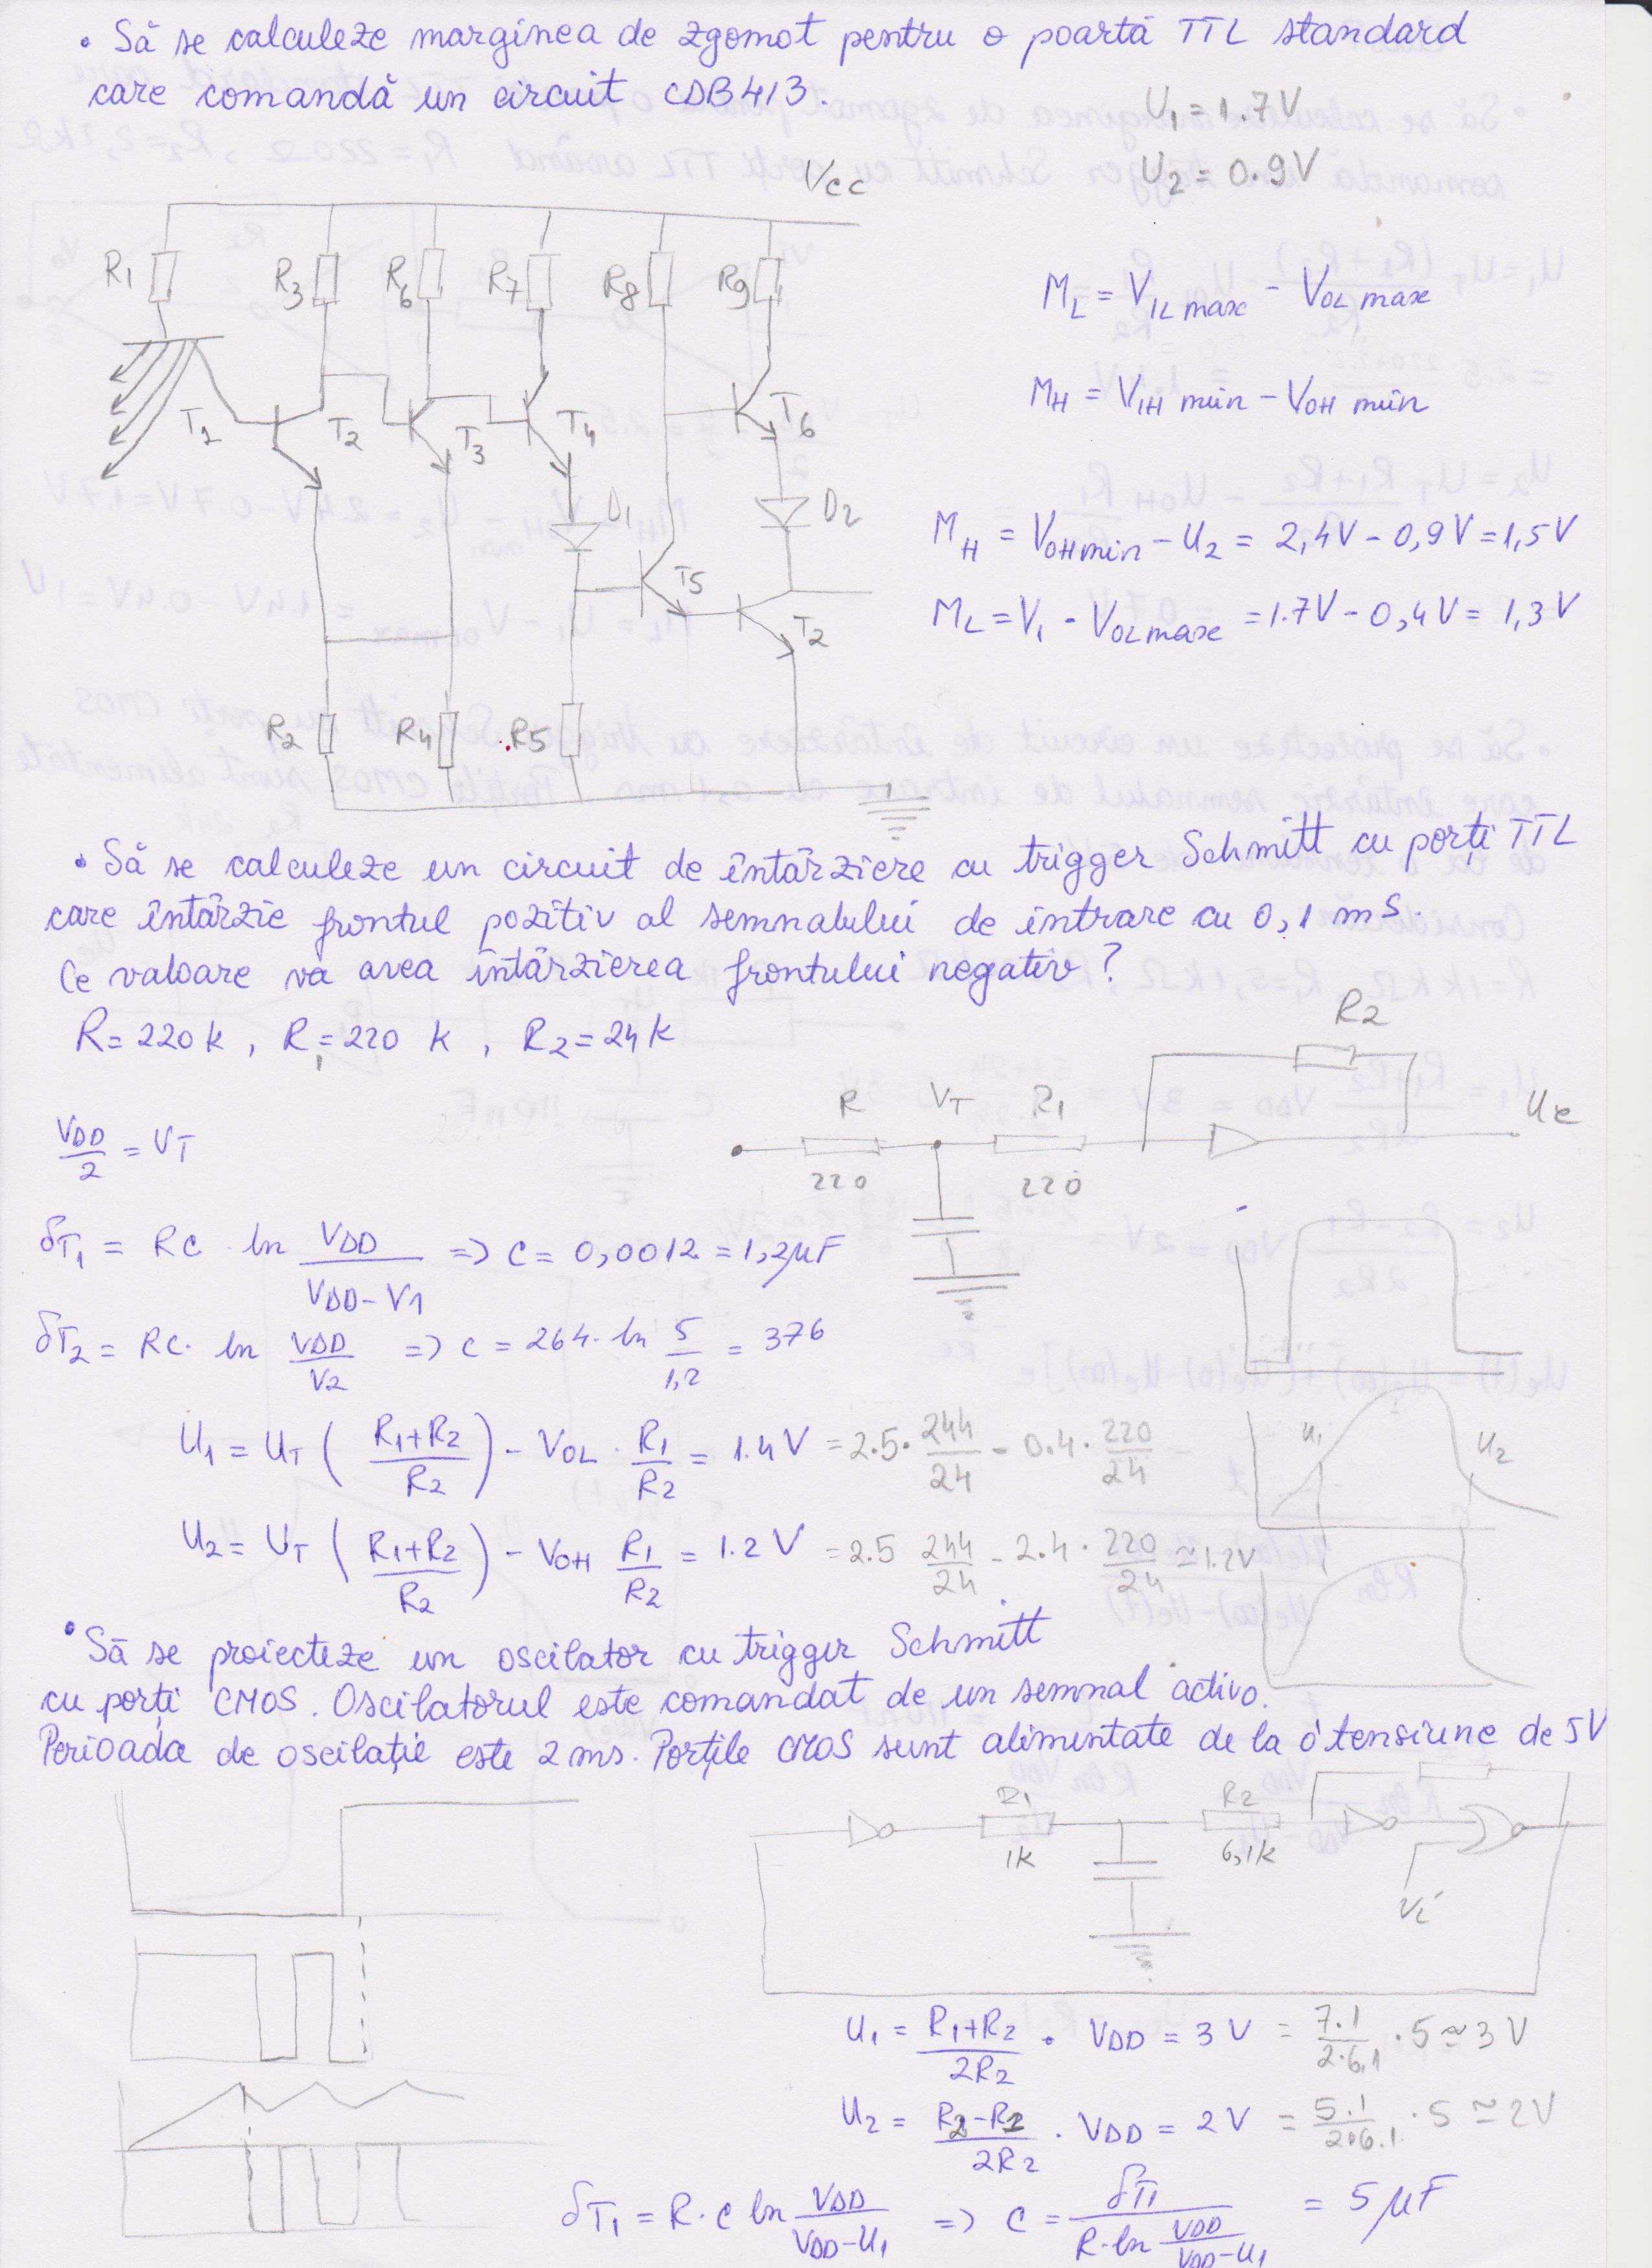 • Să se calculeze marginea de zgomot pentru o poartă TTL standard
care comandă un circuit CDB413.
U1 = 1.7V
U2 = 0.9V
Vcc
R1 R3 R6 R7 R8 R9
ML = VIL max - VOL max
MH = VIH min - VOH min
T1 T2 T3 T4 T6
D1 D2
MH = VOHmin - U2 = 2,4V - 0,9V = 1,5V
T5
ML = V1 - VOLmax = 1.7V - 0,4V = 1,3V
T2
R2 R4 R5
• Să se calculeze un circuit de întârziere cu trigger Schmitt cu porți TTL
care întârzie frontul pozitiv al semnalului de intrare cu 0,1 ms.
Ce valoare va avea întârzierea frontului negativ?
R = 220k, R1 = 220 k, R2 = 24k
R2
R VT R1 Ue
220 220
VDD/2 = VT
δT1 = RC ln VDD/(VDD-V1) => C = 0,0012 = 1,2µF
δT2 = RC· ln VDD/V2 => C = 264· ln 5/1,2 = 376
U1 = UT ((R1+R2)/R2) - VOL · R1/R2 = 1.4V = 2.5· 244/24 - 0.4· 220/24
U1 U2
U2 = UT ((R1+R2)/R2) - VOH R1/R2 = 1.2V = 2.5 244/24 - 2.4· 220/24 ≃ 1.2V
• Să se proiecteze un oscilator cu trigger Schmitt
cu porți CMOS. Oscilatorul este comandat de un semnal activ 0.
Perioada de oscilație este 2ms. Porțile CMOS sunt alimentate de la o tensiune de 5V
R1 R2
1K 6,1K
Vi
U1 = (R1+R2)/2R2 · VDD = 3V = 7.1/2·6,1 · 5 ≃ 3V
U2 = (R2-R1)/2R2 · VDD = 2V = 5.1/2·6.1 · 5 ≃ 2V
δT1 = R·C ln VDD/(VDD-U1) => C = δT1/(R·ln VDD/(VDD-U1)) = 5µF